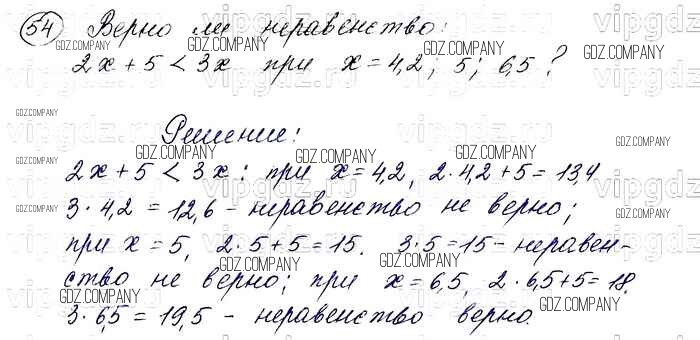 54 Верно ли неравенство:
2x + 5 < 3x при x = 4,2; 5; 6,5?
Решение:
2x + 5 < 3x: при x = 4,2, 2·4,2 + 5 = 13,4
3·4,2 = 12,6 - неравенство не верно;
при x = 5, 2·5 + 5 = 15. 3·5 = 15 - неравен-
ство не верно; при x = 6,5, 2·6,5 + 5 = 18.
3·6,5 = 19,5 - неравенство верно.